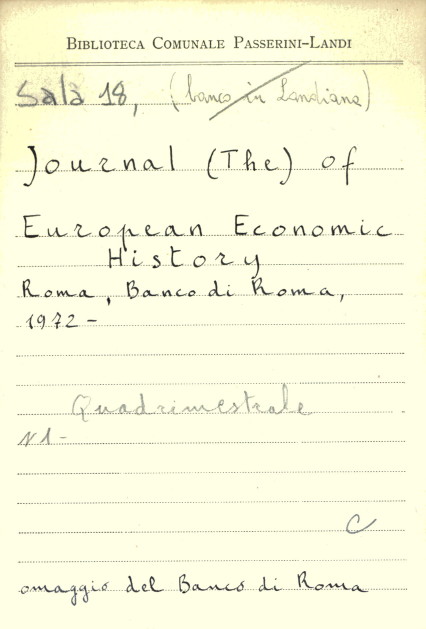 BIBLIOTECA COMUNALE PASSERINI-LANDI
Sala 18, (banco in Landiana)
Journal (The) of
European Economic
History
Roma, Banco di Roma,
1972 -
Quadrimestrale
N1-
C
omaggio del Banco di Roma